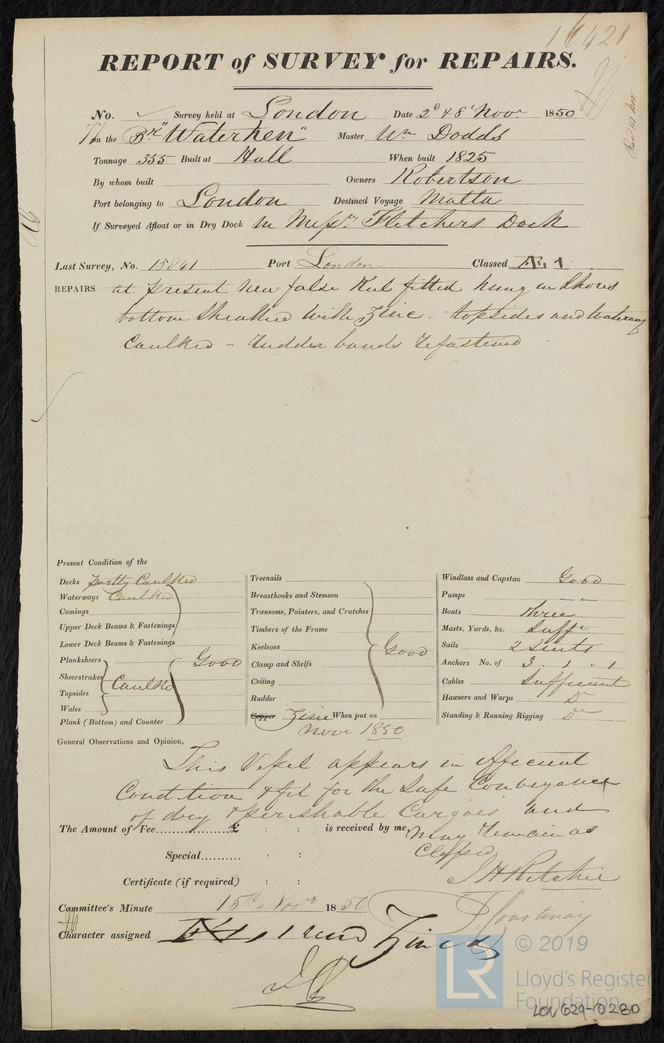 16421
REPORT of SURVEY for REPAIRS.
No. Survey held at London Date 2d & 8th Novr 1850
on the Br "Waterhen" Master Wm Dodds
Tonnage 355 Built at Hull When built 1825
By whom built Owners Robertson
Port belonging to London Destined Voyage Malta
If Surveyed Afloat or in Dry Dock in Messrs Fletchers Dock
Last Survey, No. 15841 Port London Classed Æ 1
REPAIRS at present New false Keel fitted hung in Shores
bottom Sheathed with Zinc - topsides and Waterways
Caulked - Rudder bands refastened
Present Condition of the
Decks partly Caulked
Waterways Caulked
Comings
Upper Deck Beams & Fastenings
Lower Deck Beams & Fastenings
Planksheers
Sheerstrakes
Topsides
Wales
Caulked
Good
Plank (Bottom) and Counter
Treenails
Breasthooks and Stemson
Transoms, Pointers, and Crutches
Timbers of the Frame
Keelsons
Clamp and Shelfs
Ceiling
Rudder
Good
Copper Zinc When put on
Novr 1850
Windlass and Capstan Good
Pumps
Boats three
Masts, Yards, &c. Sufft
Sails 2 Suits
Anchors No. of 3 . 1 . 1
Cables Sufficient
Hawsers and Warps Do
Standing & Running Rigging Do
General Observations and Opinion,
This Vessel appears in efficient
Condition & fit for the Safe Conveyance
of dry & perishable Cargoes and
may remain as
Classed
The Amount of Fee............£ : : is received by me,
Special.......... : :
Certificate (if required) : :
J H Ritchie
J Courtnay
Committee's Minute 15th Novr 1850
Character assigned Æ 1 and Zincd
© 2019
LR
Lloyd's Register
Foundation
LON 629-0280